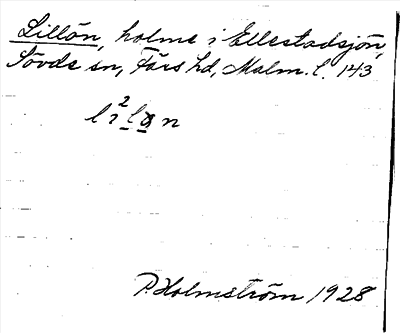 Lillön, holme i Ellestadsjön,
Sövde sn, Färs hd, Malm. l. 143
P. Holmström 1928